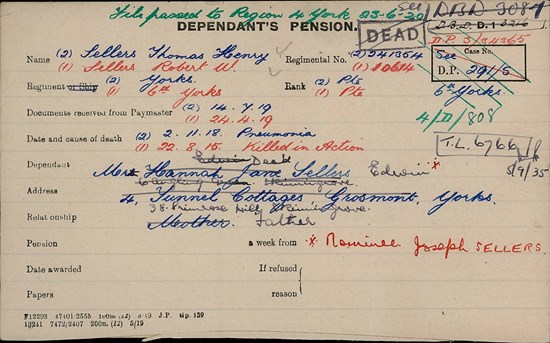 File passed to Region 4 York 23-6-30 See DBD 3084
DEPENDANT'S PENSION.
DEAD
D.P. 3/34365
Name (2) Sellers Thomas Henry Regimental No. (2) 241354 Case No.
(1) Sellers Robert W. (1) 10614 See
D.P. 291/5
Regiment or Ship (2) Yorks. Rank (2) Pte 6th Yorks.
(1) 6th Yorks (1) Pte
4/D/808
Documents received from Paymaster (2) 14.7.19
(1) 24.4.19
T.L. 6766
5/9/35
Date and cause of death (2) 2.11.18. Pneumonia
(1) 22.8.15. Killed in Action
Edwin Dead
Dependant Mrs Hannah Jane Sellers Edwin *
Address 4, Tunnel Cottages Grosmont, Yorks.
38 Primrose Hill
Relationship Mother. Father
Pension a week from * Nominee Joseph SELLERS.
Date awarded If refused
Papers reason
F12293 47401/2555 100m (12) 8/19 J.P. Gp. 159
13241 7472/2407 200m. (12) 5/19